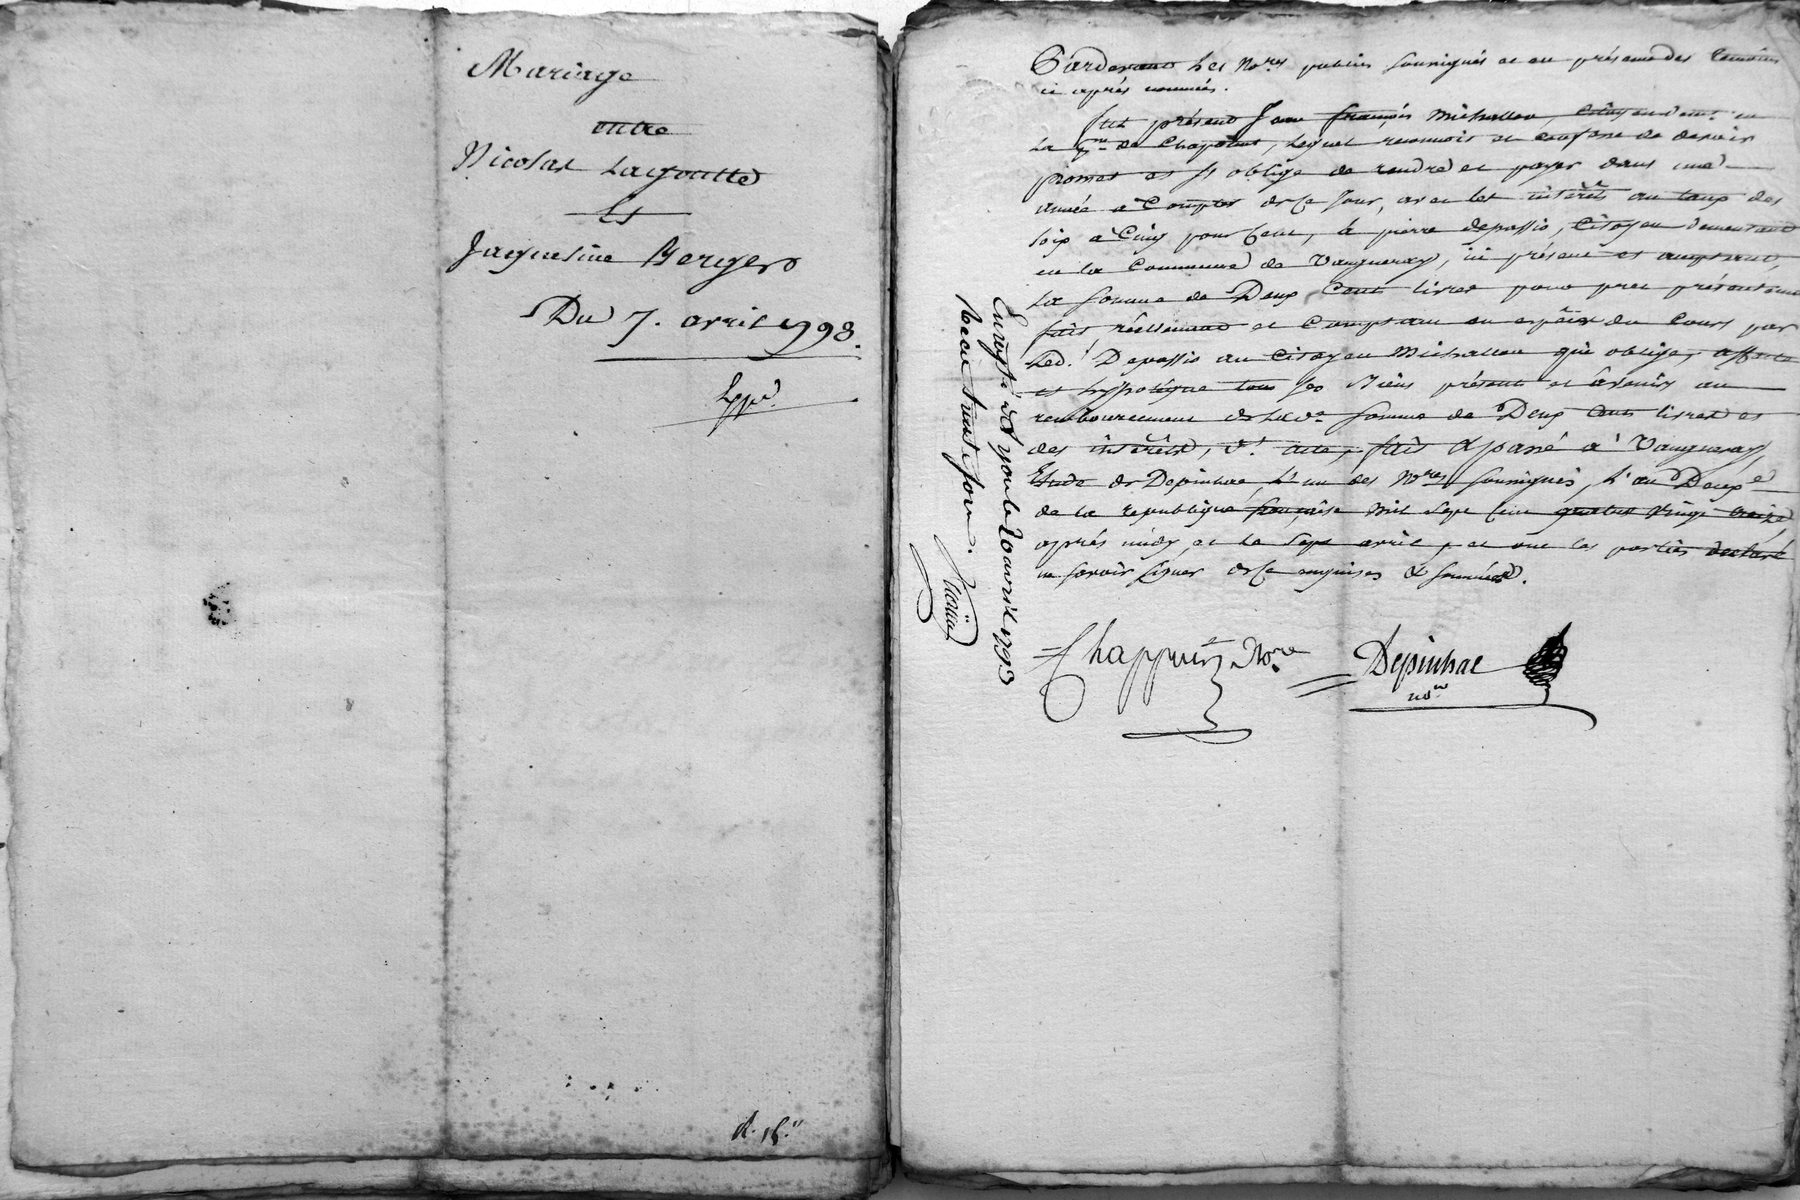 Mariage
entre
Nicolas Lagoutte
Et
Jacqueline Berger
Du 7. avril 1793.
Exp.é
d. 15.s
Pardevant Les No.res publics soussignés et en présence des temoins
ci après nommés.
fut présent Jean françois Michallon, Citoyen dem.t en
la p.sse de Chaponost, Lequel reconnoit et confesse de devoir
promet et s'oblige de rendre et payer dans une
année a Compter de Ce Jour, avec les intérêts au taux des
loix a Cinq pour Cent, à pierre depassio, Citoyen demeurant
en la Commune de Vaugneray, ici présent et acceptant,
La somme de Deux Cent livres pour pret présentement
fait réellement et Comptant en espèces du Cours par
Led.t Depassio au Citoyen Michallon qui oblige, affecte
et hypotéque tous ses Biens présents et àvenir au
remboursement de lad.e somme de Deux Cent livres et
des intérêts, d.t acte, fait & passé a Vaugneray
Etude de Depinhac, L'un des No.res soussignés, L'an Deux.e
de la republique françoise mil sept Cent quatre vingt treize
après midy, et le sept avril, et ont les parties declaré
ne savoir signer de Ce enquises & sommées.
Chappuis No.re
Depinhac
no.re
Enreg.té à Yon le 20 avril 1793
Recu trente sous.